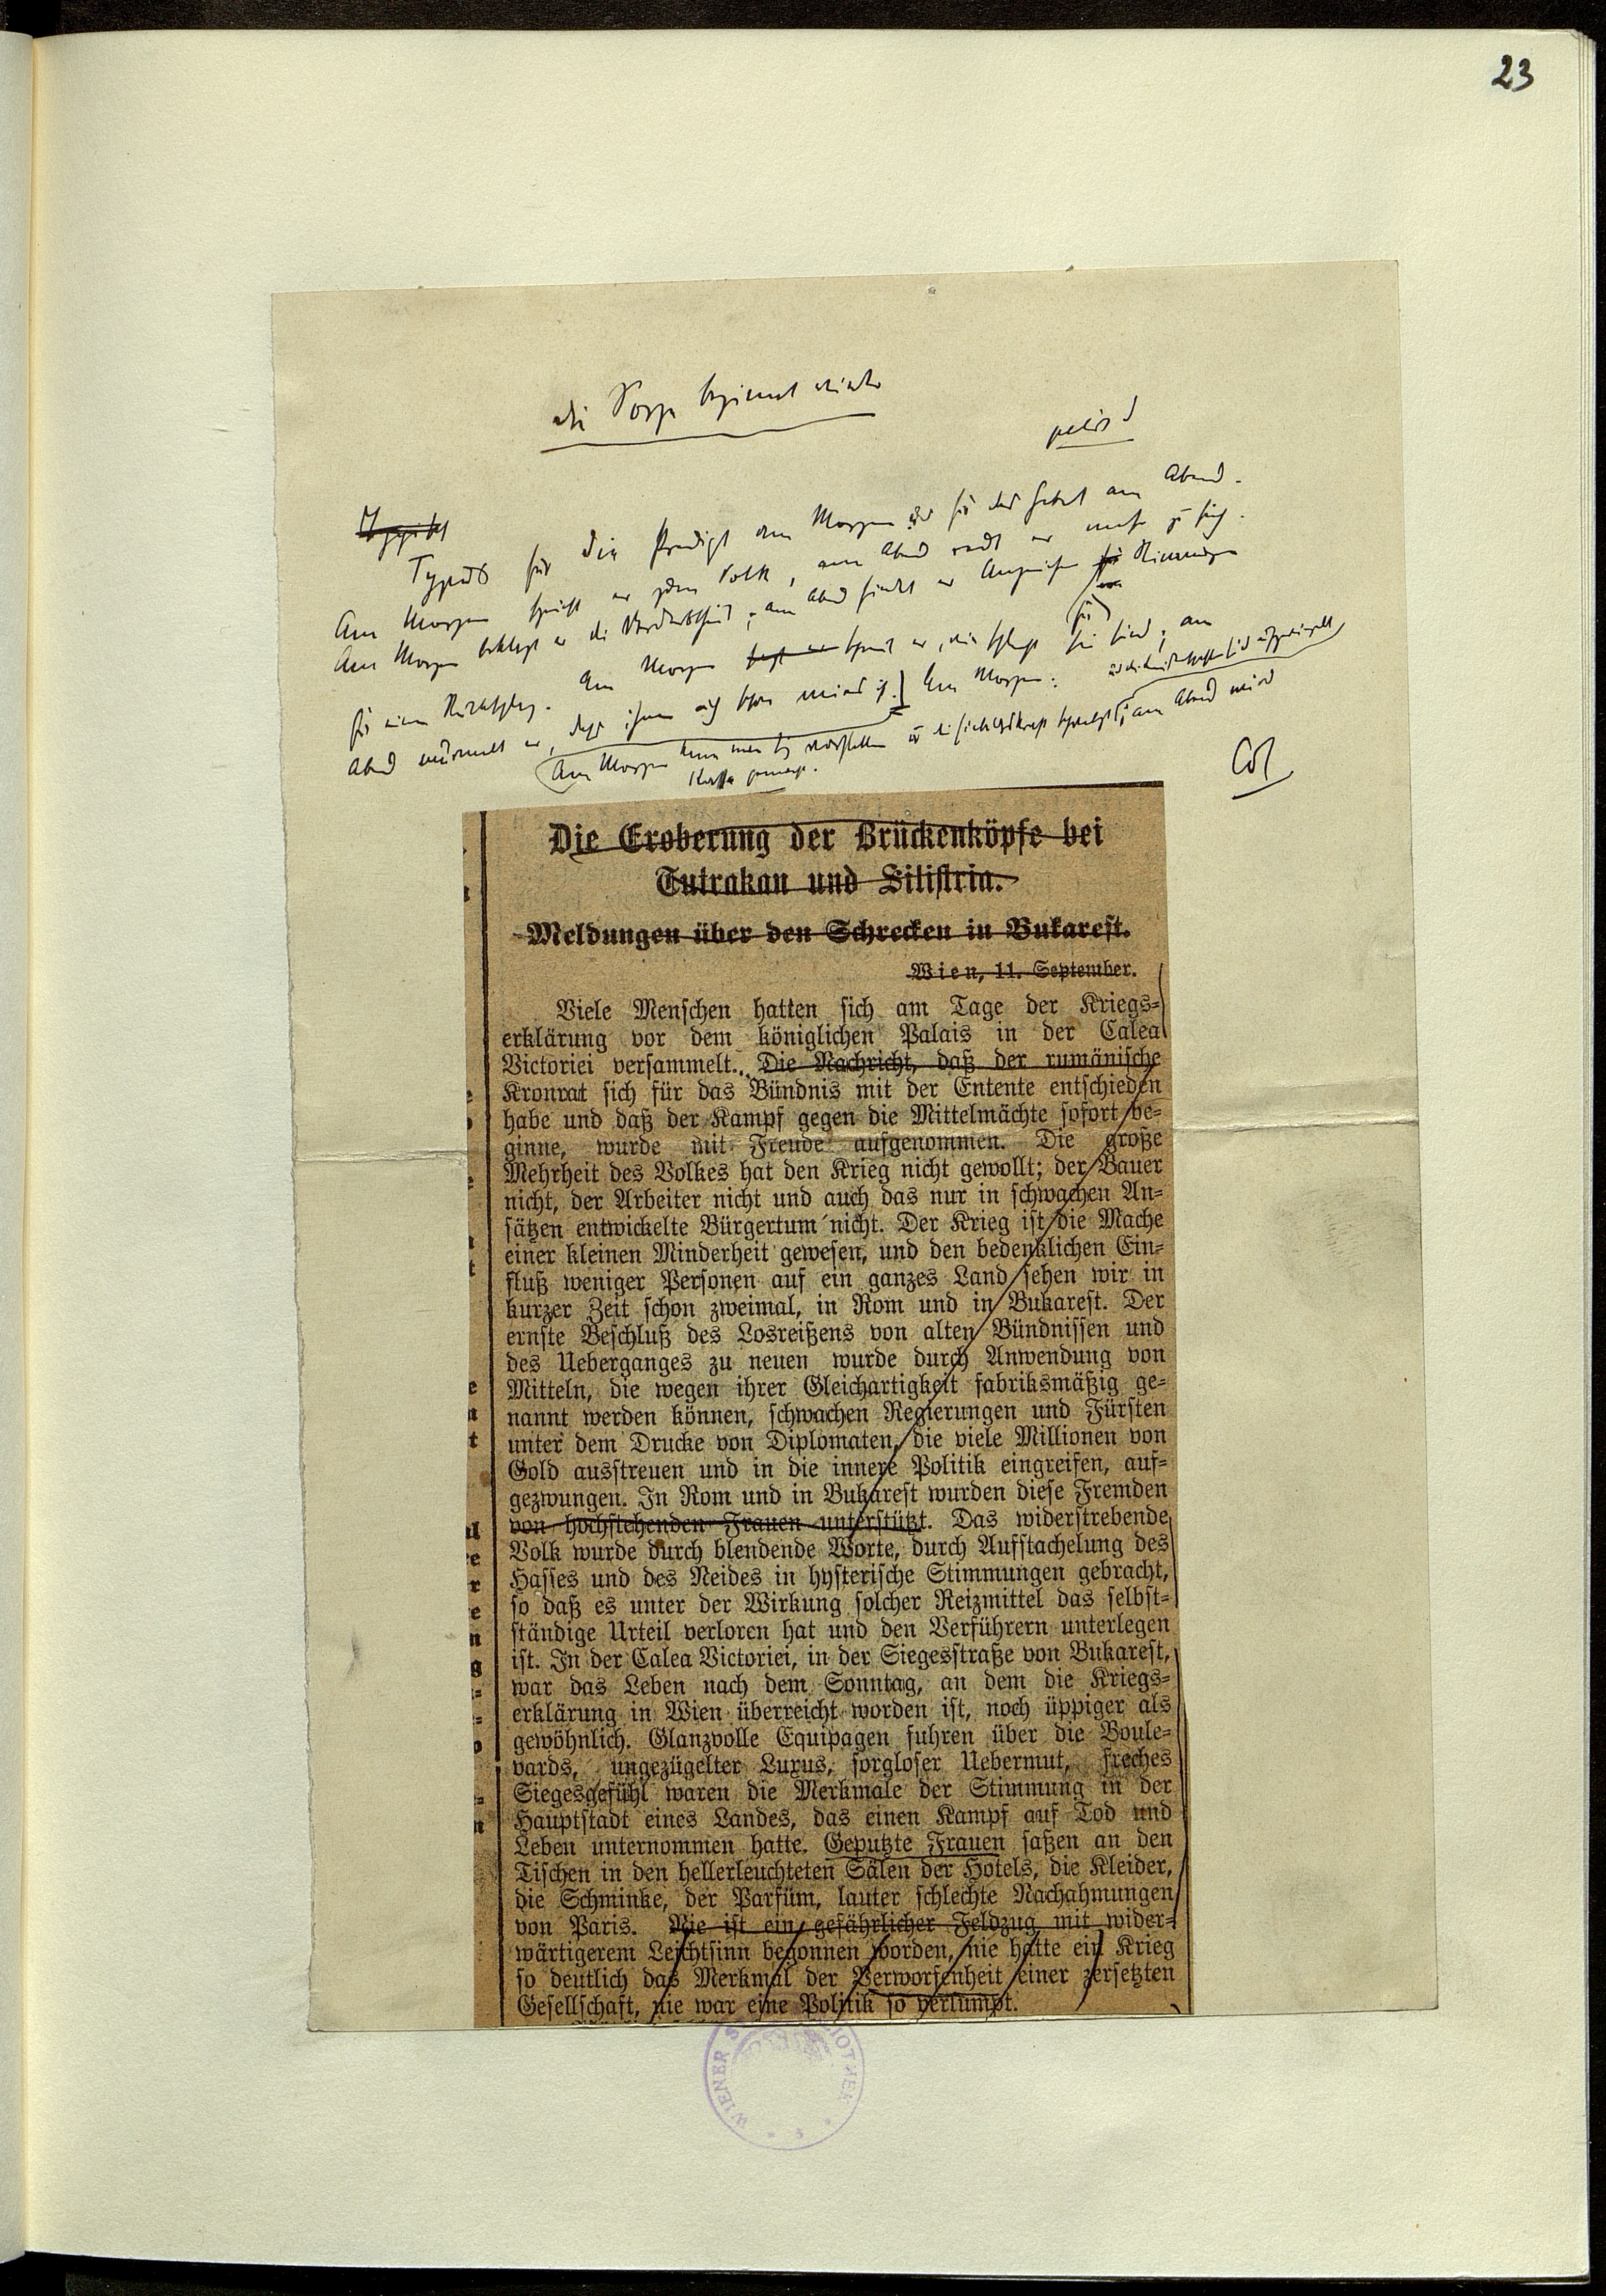 23
die Sorge beginnt
Typisch für die Predigt am Morgen für das Gebet am Abend.
Am Morgen spricht er zum Volk, am Abend redet er mehr zu sich.
Am Morgen beklagt er die ; am Abend findet er Anzeichen für Stimmungen
für einen Rückschlag. Am Morgen er, wie sie sind, am
Abend er, dass ihnen Am Morgen:
Am Morgen kann man sich vorstellen am Abend wird
Kassa gemacht.
Die Eroberung der Brückenköpfe bei
Tutrakan und Silistria.
Meldungen über den Schrecken in Bukarest.
Wien, 11. September.
Viele Menschen hatten sich am Tage der Kriegs-
erklärung vor dem königlichen Palais in der Calea
Victoriei versammelt. Die Nachricht, daß der rumänische
Kronrat sich für das Bündnis mit der Entente entschieden
habe und daß der Kampf gegen die Mittelmächte sofort be-
ginne, wurde mit Freude aufgenommen. Die große
Mehrheit des Volkes hat den Krieg nicht gewollt; der Bauer
nicht, der Arbeiter nicht und auch das nur in schwachen An-
sätzen entwickelte Bürgertum nicht. Der Krieg ist die Mache
einer kleinen Minderheit gewesen, und den bedenklichen Ein-
fluß weniger Personen auf ein ganzes Land sehen wir in
kurzer Zeit schon zweimal, in Rom und in Bukarest. Der
ernste Beschluß des Losreißens von alten Bündnissen und
des Ueberganges zu neuen wurde durch Anwendung von
Mitteln, die wegen ihrer Gleichartigkeit fabriksmäßig ge-
nannt werden können, schwachen Regierungen und Fürsten
unter dem Drucke von Diplomaten, die viele Millionen von
Gold ausstreuen und in die innere Politik eingreifen, auf-
gezwungen. In Rom und in Bukarest wurden diese Fremden
von hochstehenden Frauen unterstützt. Das widerstrebende
Volk wurde durch blendende Worte, durch Aufstachelung des
Hasses und des Neides in hysterische Stimmungen gebracht,
so daß es unter der Wirkung solcher Reizmittel das selbst-
ständige Urteil verloren hat und den Verführern unterlegen
ist. In der Calea Victoriei, in der Siegesstraße von Bukarest,
war das Leben nach dem Sonntag, an dem die Kriegs-
erklärung in Wien überreicht worden ist, noch üppiger als
gewöhnlich. Glanzvolle Equipagen fuhren über die Boule-
vards, ungezügelter Luxus, sorgloser Uebermut, freches
Siegesgefühl waren die Merkmale der Stimmung in der
Hauptstadt eines Landes, das einen Kampf auf Tod und
Leben unternommen hatte. Geputzte Frauen saßen an den
Tischen in den hellerleuchteten Sälen der Hotels, die Kleider,
die Schminke, der Parfüm, lauter schlechte Nachahmungen
von Paris. Nie ist ein gefährlicher Feldzug mit wider-
wärtigerem Leichtsinn begonnen worden, nie hatte ein Krieg
so deutlich das Merkmal der Verworfenheit einer zersetzten
Gesellschaft, nie war eine Politik so verlumpt.
WIENER